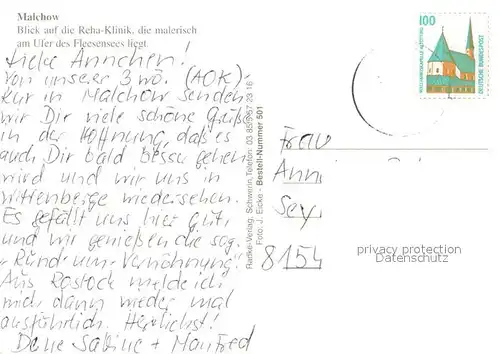 Malchow
Blick auf die Reha-Klinik, die malerisch
am Ufer des Fleesensees liegt.
Liebe Annchen!
Von unserer 3 wö. (AOK)-
Kur in Malchow senden
wir Dir viele schöne Grüße
in der Hoffnung, daß es
auch Dir bald besser gehen
wird und wir uns in
Wittenberge wiedersehen.
Es gefällt uns hier gut,
und wir genießen die sog.
"Rundum-Verwöhnung".
Aus Rostock melde ich
mich dann wieder mal
ausführlich. Herzlichst!
Deine Sabine + Manfred
Radke-Verlag, Schwerin, Telefon: 03 85/5 57 23 16
Foto: J. Eicke - Bestell-Nummer 501
100
WALLFAHRTSKAPELLE ALTÖTTING
DEUTSCHE BUNDESPOST
Frau
Ann
Sey
8154
privacy protection
Datenschutz